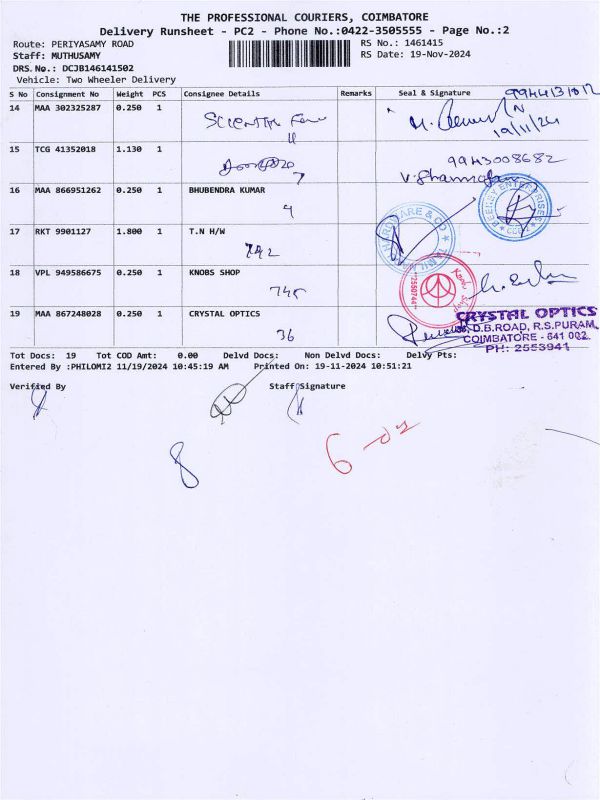 THE PROFESSIONAL COURIERS, COIMBATORE
Delivery Runsheet - PC2 - Phone No.:0422-3505555 - Page No.:2
Route: PERIYASAMY ROAD
RS No.: 1461415
Staff: MUTHUSAMY
RS Date: 19-Nov-2024
DRS.No.: DCJB146141502
Vehicle: Two Wheeler Delivery
S No Consignment No Weight PCS Consignee Details Remarks Seal & Signature
14 MAA 302325287 0.250 1
19/11/24
15 TCG 41352018 1.130 1 9943008682
7
16 MAA 866951262 0.250 1 BHUBENDRA KUMAR
4
17 RKT 9901127 1.800 1 T.N H/W
742
18 VPL 949586675 0.250 1 KNOBS SHOP
745
19 MAA 867248028 0.250 1 CRYSTAL OPTICS
36
CRYSTAL OPTICS
D.B.ROAD, R.S.PURAM,
COIMBATORE - 641 002.
PH: 2553941
Tot Docs: 19 Tot COD Amt: 0.00 Delvd Docs: Non Delvd Docs: Delvy Pts:
Entered By :PHILOMI2 11/19/2024 10:45:19 AM Printed On: 19-11-2024 10:51:21
Verified By Staff Signature
8